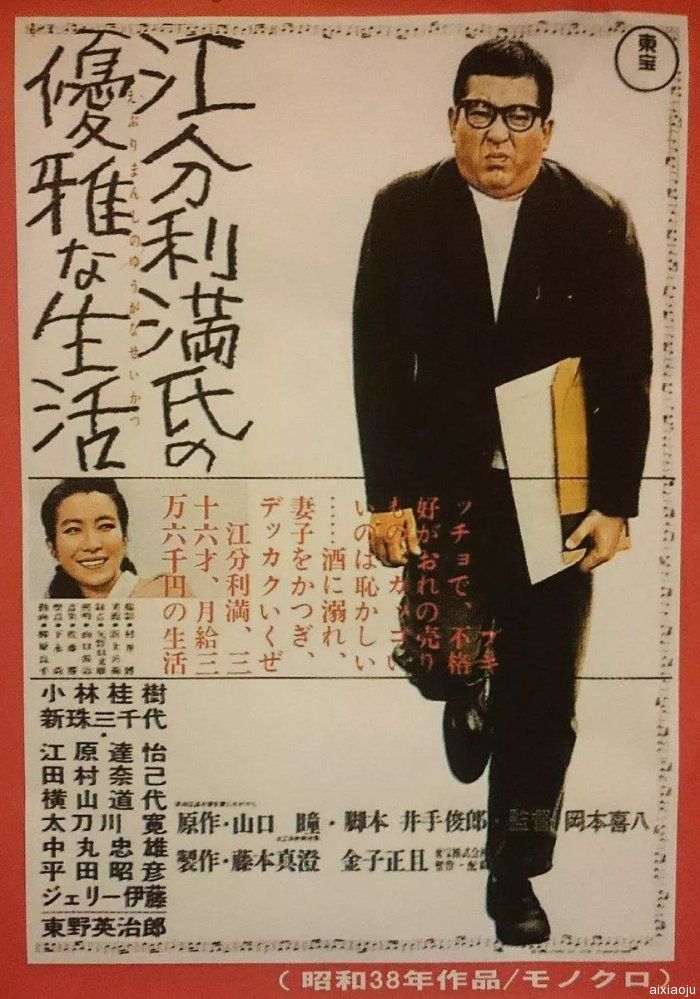 東宝
江分利満氏の
優雅な生活
えぶりまんしのゆうがなせいかつ
ブキ
ッチョで、不格
好がおれの売り
もの、カッコい
いのは恥かしい
……酒に溺れ、
妻子をかつぎ、
デッカクいくぜ
江分利満、三
十六才、月給三
万六千円の生活
小林桂樹
新珠三千代
・
江原達怡
田村奈己
横山道代
太刀川寛
中丸忠雄
平田昭彦
ジェリー伊藤
東野英治郎
原作・山口瞳・脚本 井手俊郎・監督/岡本喜八
製作・藤本真澄 金子正且
(昭和38年作品/モノクロ)
aixiaoju